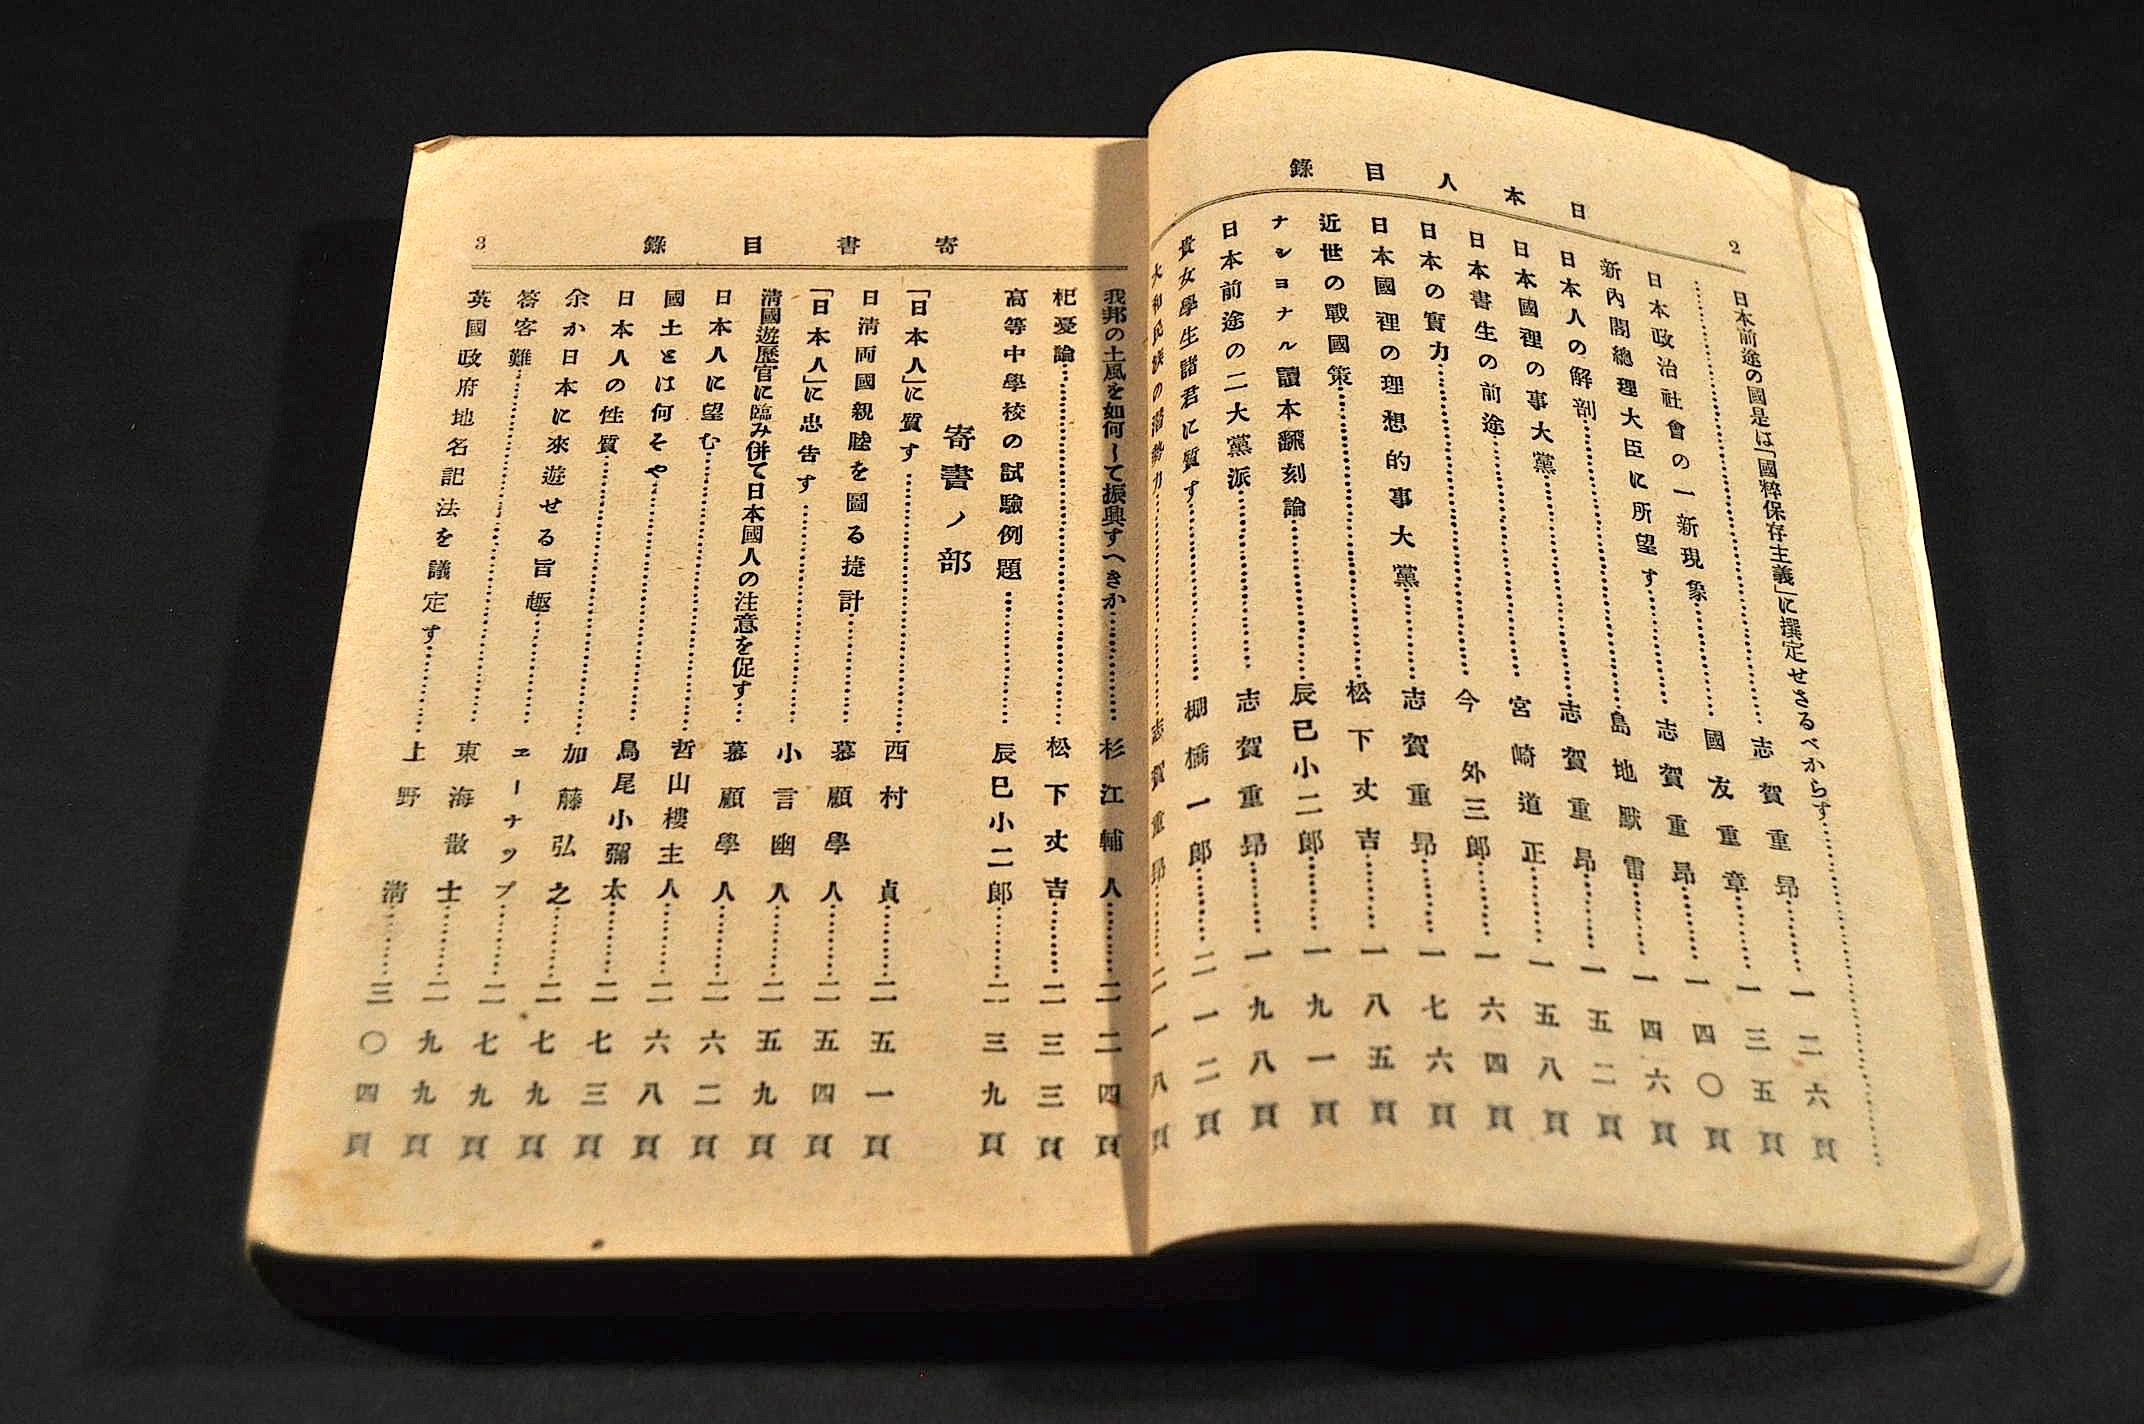 日本人目錄
2
日本前途の國是は「國粹保存主義」に撰定せさるべからす……
……志賀重昂……一二六頁
日本政治社會の一新現象……國友重章……一三五頁
新內閣總理大臣に所望す……志賀重昂……一四〇頁
日本人の解剖……島地默雷……一四六頁
日本國裡の事大黨……志賀重昂……一五二頁
日本書生の前途……宮崎道正……一五八頁
日本の實力……今外三郎……一六四頁
日本國裡の理想的事大黨……志賀重昂……一七六頁
近世の戰國策……松下丈吉……一八五頁
ナシヨナル讀本翻刻論……辰巳小二郎……一九一頁
日本前途の二大黨派……志賀重昂……一九八頁
貴女學生諸君に質す……棚橋一郎……二一二頁
大和民族の潜勢力……志賀重昂……二一八頁
寄書目錄
3
我邦の土風を如何して振興すへきか……杉江輔人……二二四頁
杞憂論……松下丈吉……二三三頁
高等中學校の試驗例題……辰巳小二郎……二三九頁
寄書ノ部
「日本人」に質す……西村貞……二五一頁
日清両國親睦を圖る捷計……慕顧學人……二五四頁
「日本人」に忠告す……小言幽人……二五九頁
淸國遊歷官に臨み併て日本國人の注意を促す…慕顧學人……二六二頁
日本人に望む……哲山樓主人……二六八頁
國土とは何そや……鳥尾小彌太……二七三頁
日本人の性質……加藤弘之……二七九頁
余か日本に來遊せる旨趣……エーナツプ……二七九頁
答客難……東海散士……二九九頁
英國政府地名記法を議定す……上野淸……三〇四頁